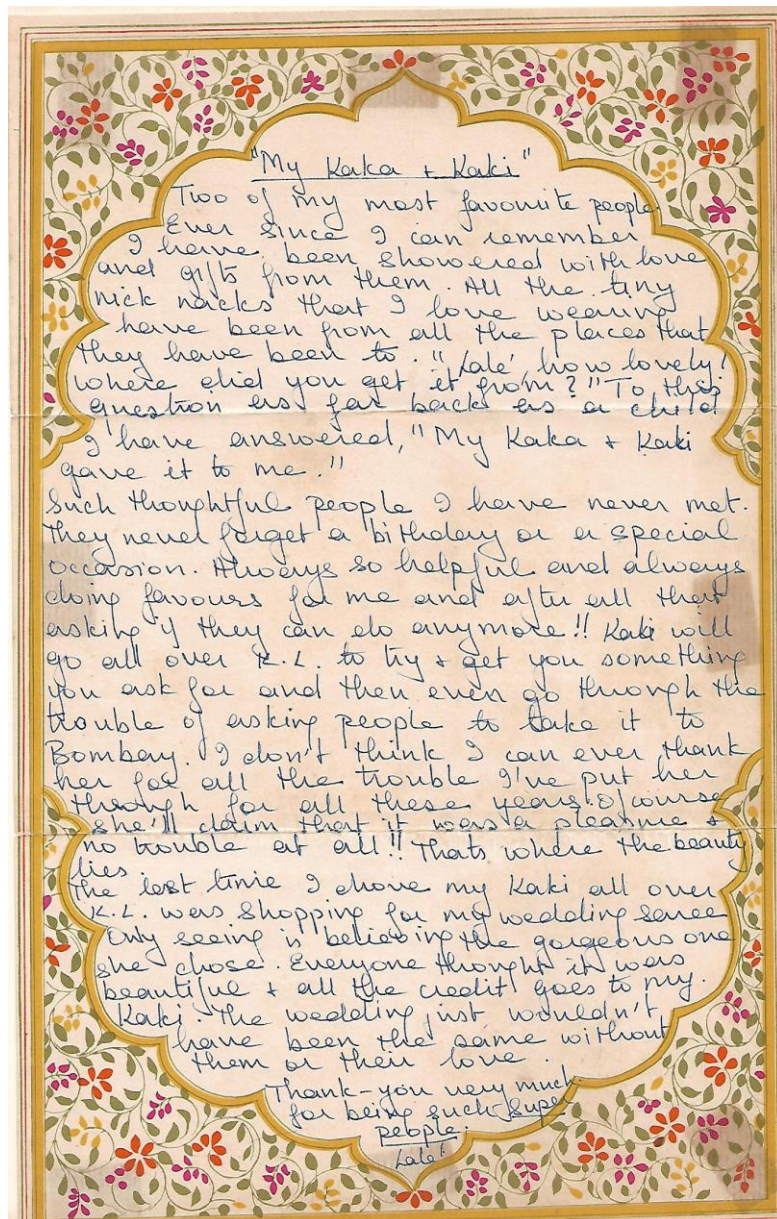 "My Kaka + Kaki"
Two of my most favourite people
Ever since I can remember
I have been showered with love
and gifts from them. All the tiny
nick nacks that I love wearing
have been from all the places that
they have been to. "Lalé, how lovely!
where did you get it from?" To this
question as far back as a child
I have answered, "My Kaka + Kaki
gave it to me."
Such thoughtful people I have never met.
They never forget a birthday or a special
occasion. Always so helpful and always
doing favours for me and after all that
asking if they can do anymore!! Kaki will
go all over K.L. to try + get you something
you ask for and then even go through the
trouble of asking people to take it to
Bombay. I don't think I can ever thank
her for all the trouble I've put her
through for all these years. Ofcourse
she'll claim that it was a pleasure +
no trouble at all!! Thats where the beauty
lies.
The last time I drove my Kaki all over
K.L. was shopping for my wedding saree
Only seeing is believing the gorgeous one
she chose. Everyone thought it was
beautiful + all the credit goes to my.
Kaki. The wedding just wouldn't
have been the same without
them or their love.
Thank-you very much
for being such super
people.
Lalé